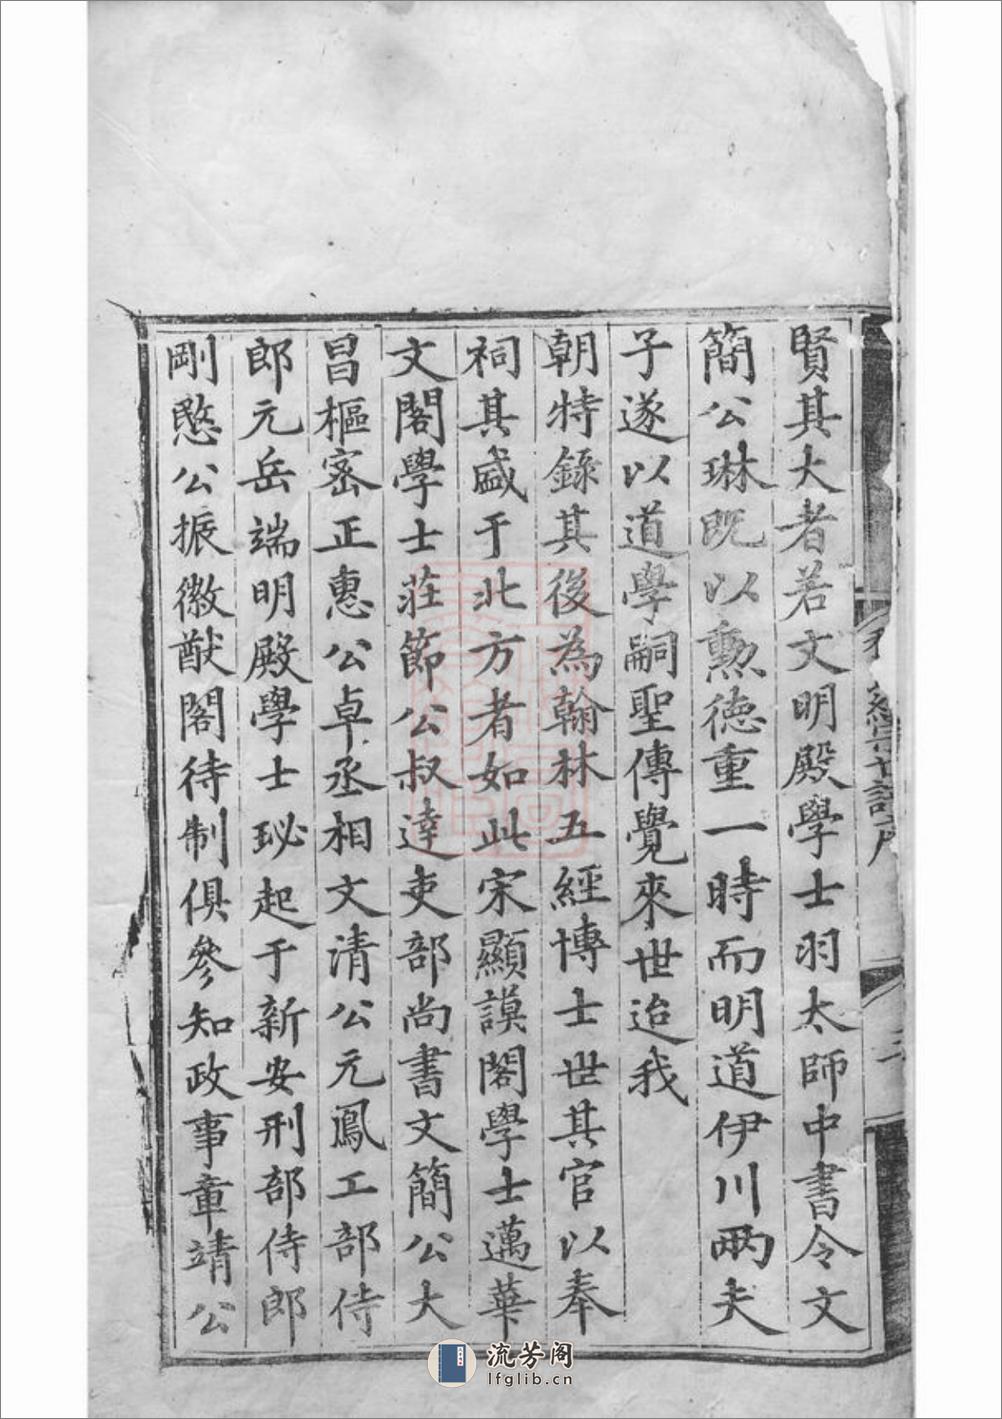 賢其大者若文明殿學士羽太師中書令文
簡公琳既以勲徳重一時而明道伊川兩夫
子遂以道學嗣聖傳覺來世迨我
朝特錄其後為翰林五經博士世其官以奉
祠其盛于北方者如此宋顯謨閣學士邁華
文閣學士莊節公叔逹吏部尚書文簡公大
昌樞宻正惠公卓丞相文清公元鳳工部侍
郎元岳端明殿學士珌起于新安刑部侍郎
剛愍公振徽猷閣待制俱參知政事章靖公
流芳阁
lfglib.cn